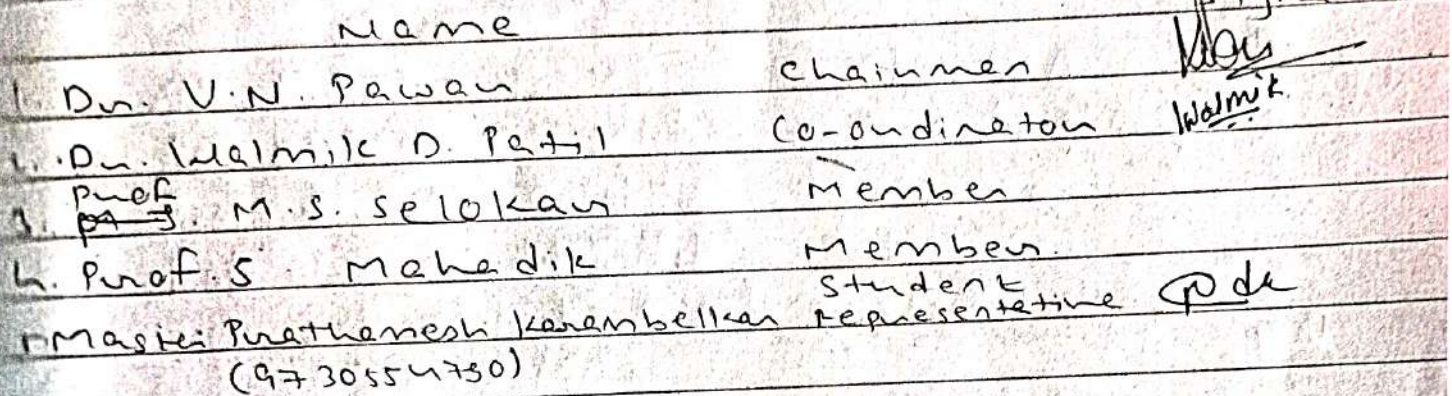 Name
1. Dr. V.N. Pawar Chairman
2. Dr. Walmik D. Patil Co-ordinator Walmik
3. Prof. M.S. Selokar Member
4. Prof. S. Mahadik Member.
Student
5. Master Prathamesh Karambelkar representative
(9730554750)